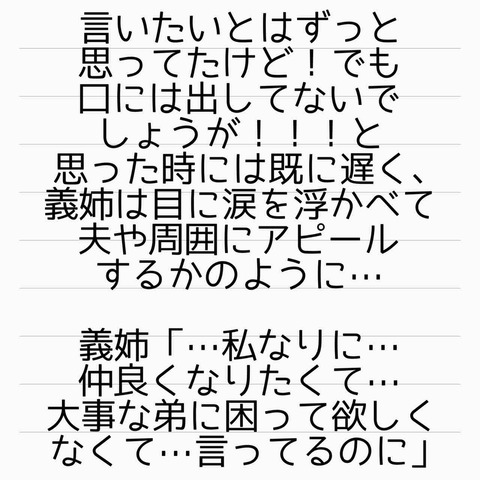 言いたいとはずっと
思ってたけど！でも
口には出してないで
しょうが！！！と
思った時には既に遅く、
義姉は目に涙を浮かべて
夫や周囲にアピール
するかのように…
義姉「…私なりに…
仲良くなりたくて…
大事な弟に困って欲しく
なくて…言ってるのに」